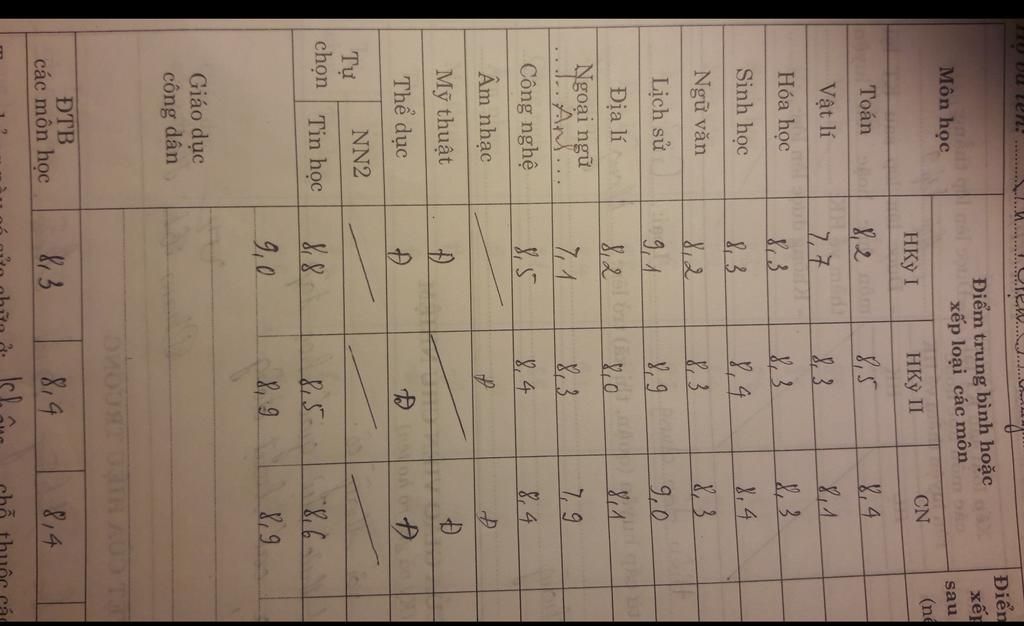 Họ và tên:
Môn học
Điểm trung bình hoặc
xếp loại các môn
Điểm
xếp
sau
HKỳ I HKỳ II CN
Toán 8,2 8,5 8,4
Vật lí 7,7 8,3 8,1
Hóa học 8,3 8,3 8,3
Sinh học 8,3 8,4 8,4
Ngữ văn 8,2 8,3 8,3
Lịch sử 9,1 8,9 9,0
Địa lí 8,2 8,0 8,1
Ngoại ngữ 7,1 8,3 7,9
...Anh...
Công nghệ 8,5 8,4 8,4
Âm nhạc Đ Đ
Mỹ thuật Đ Đ
Thể dục Đ Đ Đ
Tự
chọn
NN2
Tin học 8,8 8,5 8,6
Giáo dục
công dân
9,0 8,9 8,9
ĐTB
các môn học
8,3 8,4 8,4
này có sửa chữa ở: không chỗ thuộc các